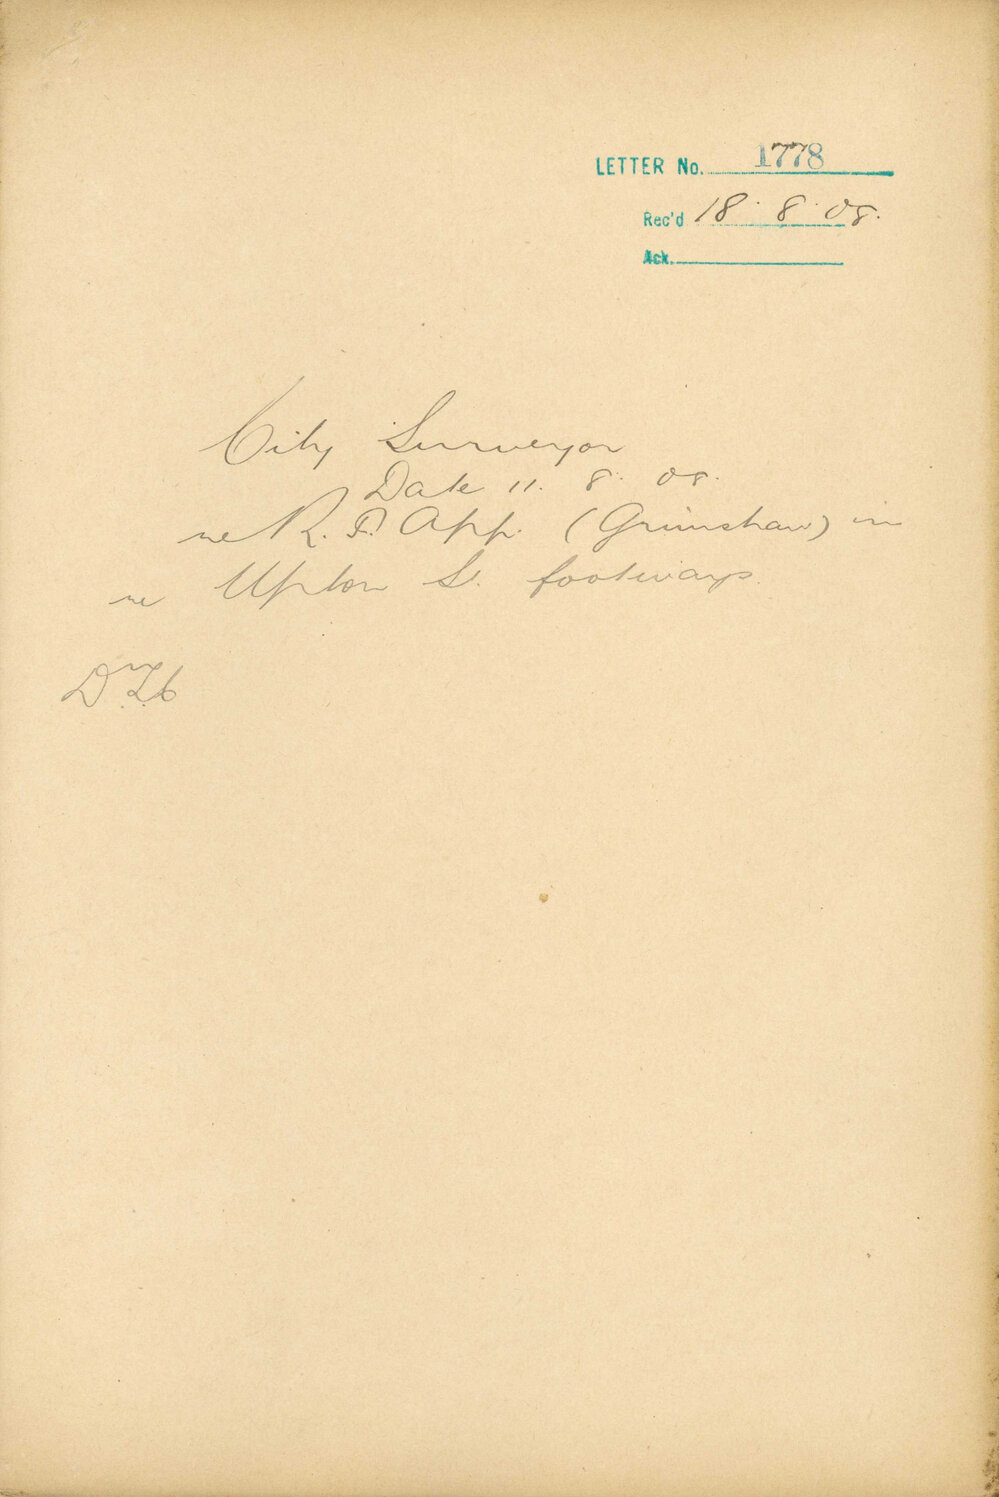 LETTER No. 1778
Rec'd 18.8.08.
Ack.
City Surveyor
Date 11. 8. 08.
re R. F. App. (Grimshaw) in
re Upton St. footways.